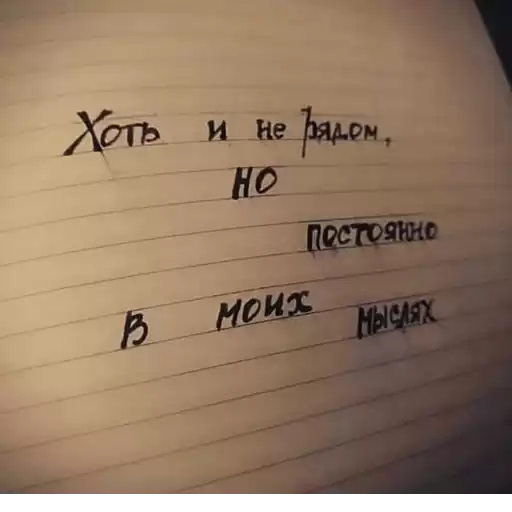 Хоть и не рядом,
но
постоянно
в моих мыслях